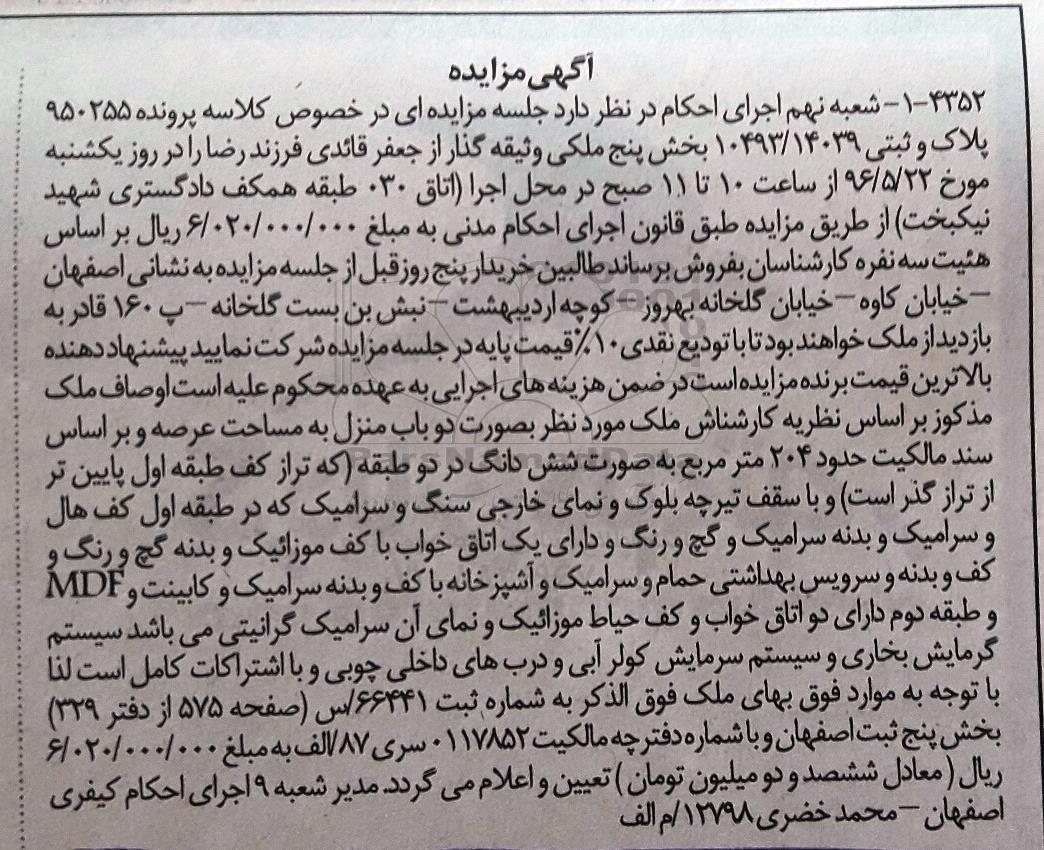 آگهی مزایده
۱-۴۳۵۲- شعبه نهم اجرای احکام در نظر دارد جلسه مزایده ای در خصوص کلاسه پرونده ۹۵۰۲۵۵
پلاک و ثبتی ۱۰۴۹۳/۱۴۰۳۹ بخش پنج ملکی وثیقه گذار از جعفر قائدی فرزند رضا را در روز یکشنبه
مورخ ۹۶/۵/۲۲ از ساعت ۱۰ تا ۱۱ صبح در محل اجرا (اتاق ۰۳۰ طبقه همکف دادگستری شهید
نیکبخت) از طریق مزایده طبق قانون اجرای احکام مدنی به مبلغ ۶/۰۲۰/۰۰۰/۰۰۰ ریال بر اساس
هئیت سه نفره کارشناسان بفروش برساند طالبین خریدار پنج روز قبل از جلسه مزایده به نشانی اصفهان
–خیابان کاوه –خیابان گلخانه بهروز –کوچه اردیبهشت –نبش بن بست گلخانه –پ ۱۶۰ قادر به
بازدید از ملک خواهند بود تا با تودیع نقدی ۱۰٪ قیمت پایه در جلسه مزایده شرکت نمایید پیشنهاد دهنده
بالاترین قیمت برنده مزایده است در ضمن هزینه های اجرایی به عهده محکوم علیه است اوصاف ملک
مذکوز بر اساس نظریه کارشناش ملک مورد نظر بصورت دو باب منزل به مساحت عرصه و بر اساس
سند مالکیت حدود ۲۰۴ متر مربع به صورت شش دانگ در دو طبقه (که تراز کف طبقه اول پایین تر
از تراز گذر است) و با سقف تیرچه بلوک و نمای خارجی سنگ و سرامیک که در طبقه اول کف هال
و سرامیک و بدنه سرامیک و گچ و رنگ و دارای یک اتاق خواب با کف موزائیک و بدنه گچ و رنگ و
کف و بدنه و سرویس بهداشتی حمام و سرامیک و آشپزخانه با کف و بدنه سرامیک و کابینت و MDF
و طبقه دوم دارای دو اتاق خواب و کف حیاط موزائیک و نمای آن سرامیک گرانیتی می باشد سیستم
گرمایش بخاری و سیستم سرمایش کولر آبی و درب های داخلی چوبی و با اشتراکات کامل است لذا
با توجه به موارد فوق بهای ملک فوق الذکر به شماره ثبت ۶۶۴۴۱/س (صفحه ۵۷۵ از دفتر ۳۲۹)
بخش پنج ثبت اصفهان و با شماره دفترچه مالکیت ۰۱۱۷۸۵۲ سری ۸۷/الف به مبلغ ۶/۰۲۰/۰۰۰/۰۰۰
ریال (معادل ششصد و دو میلیون تومان) تعیین و اعلام می گردد. مدیر شعبه ۹ اجرای احکام کیفری
اصفهان – محمد خضری ۱۲۷۹۸/م الف